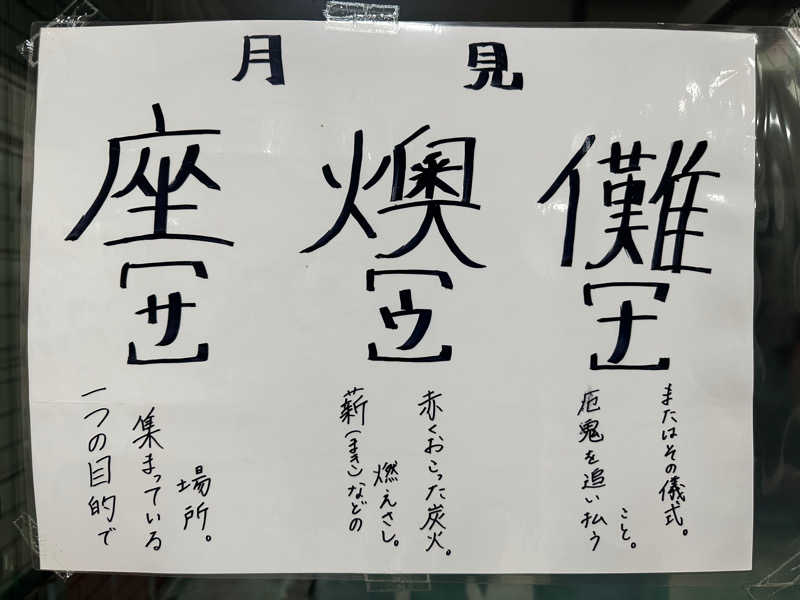 月見
座燠儺
[サ][ウ][ナ]
一つの目的で
集まっている
場所。
薪(まき)などの
燃えさし。
赤くおこった炭火。
厄鬼を追い払う
こと。
またはその儀式。